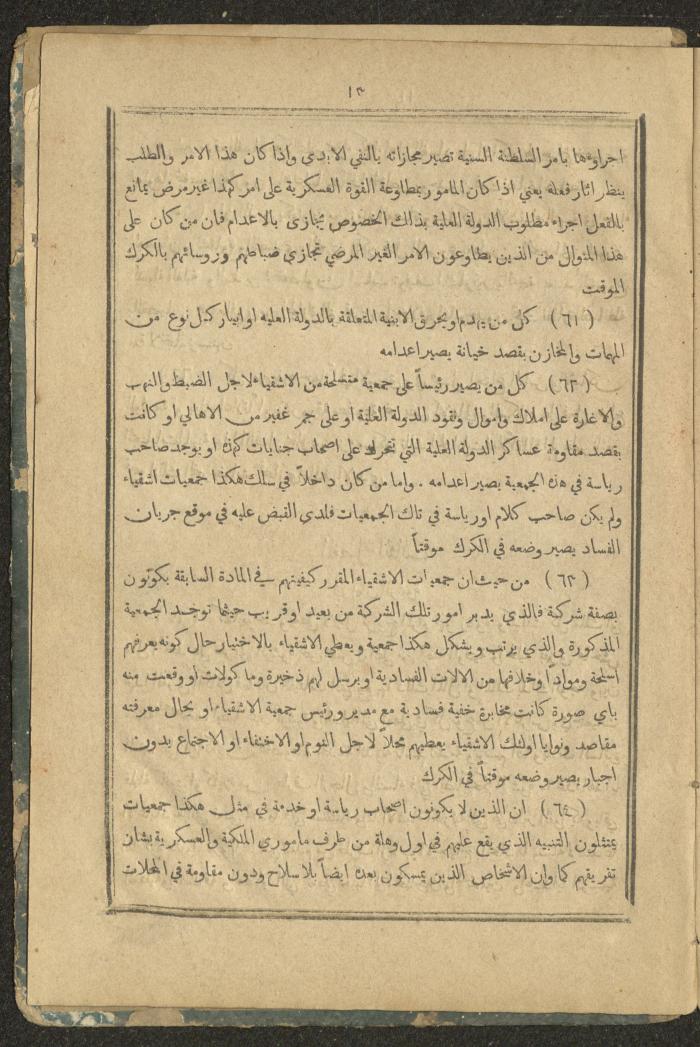 ١٣
اجراوءها بامر السلطنة السنية تصير مجازاته بالنفي الابدي واذا كان هذا الامر والطلب
ينظر اثار فعله يعني اذا كان المامور بمطاوعة القوة العسكرية على امر كهذا غير مرض يمانع
بالفعل اجراء مطلوب الدولة العلية بذلك الخصوص يجازى بالاعدام فان من كان على
هذا المنوال من الذين يطاوعون الامر الغير المرضي تجازى ضباطهم وروسائهم بالكرك
الموقت
(٦١) كل من يهدم او يحرق الابنية المتعلقة بالدولة العليه او انبار كمل نوع من
المهمات والمخازن بقصد خيانة يصير اعدامه
(٦٢) كل من يصير رئيساً على جمعية متسلحة من الاشقياء لاجل الضبط والنهب
والاغارة على املاك واموال ونقود الدولة العلية او على جم غفير من الاهالي او كانت
بقصد مقاومة عساكر الدولة العلية التي تتحرك على اصحاب جنايات كهذه او يوجد صاحب
رياسة في هذه الجمعية يصير اعدامه . واما من كان داخلاً في سلك هكذا جمعيات اشقياء
ولم يكن صاحب كلام او رياسة في تلك الجمعيات فلدى القبض عليه في موقع جريان
الفساد يصير وضعه في الكرك موقتاً
(٦٣) من حيث ان جمعيات الاشقياء المقرر كيفيتهم في المادة السابقة يكونون
بصفة شركة فالذي يدبر امور تلك الشركة من بعيد او قريب حيثما توجد الجمعية
المذكورة والذي يرتب ويشكل هكذا جمعية ويعطي الاشقياء بالاختيار حال كونه يعرفهم
اسلحة ومواداً وخلافها من الالات الفسادية او يرسل لهم ذخيرة وماكولات او وقعت منه
باي صورة كانت مخابرة خفية فسادية مع مدير ورئيس جمعية الاشقياء او بحال معرفته
مقاصد ونوايا اولئك الاشقياء يعطيهم محلاً لاجل النوم او الاختفاء او الاجتماع بدون
اجبار يصير وضعه موقتاً في الكرك
(٦٤) ان الذين لا يكونون اصحاب رياسة او خدمة في مثل هكذا جمعيات
يمتثلون التنبيه الذي يقع عليهم في اول وهلة من طرف ماموري الملكية والعسكرية بشان
تفريقهم كما وان الاشخاص الذين يمسكون بعده ايضاً بلا سلاح ودون مقاومة في المحلات